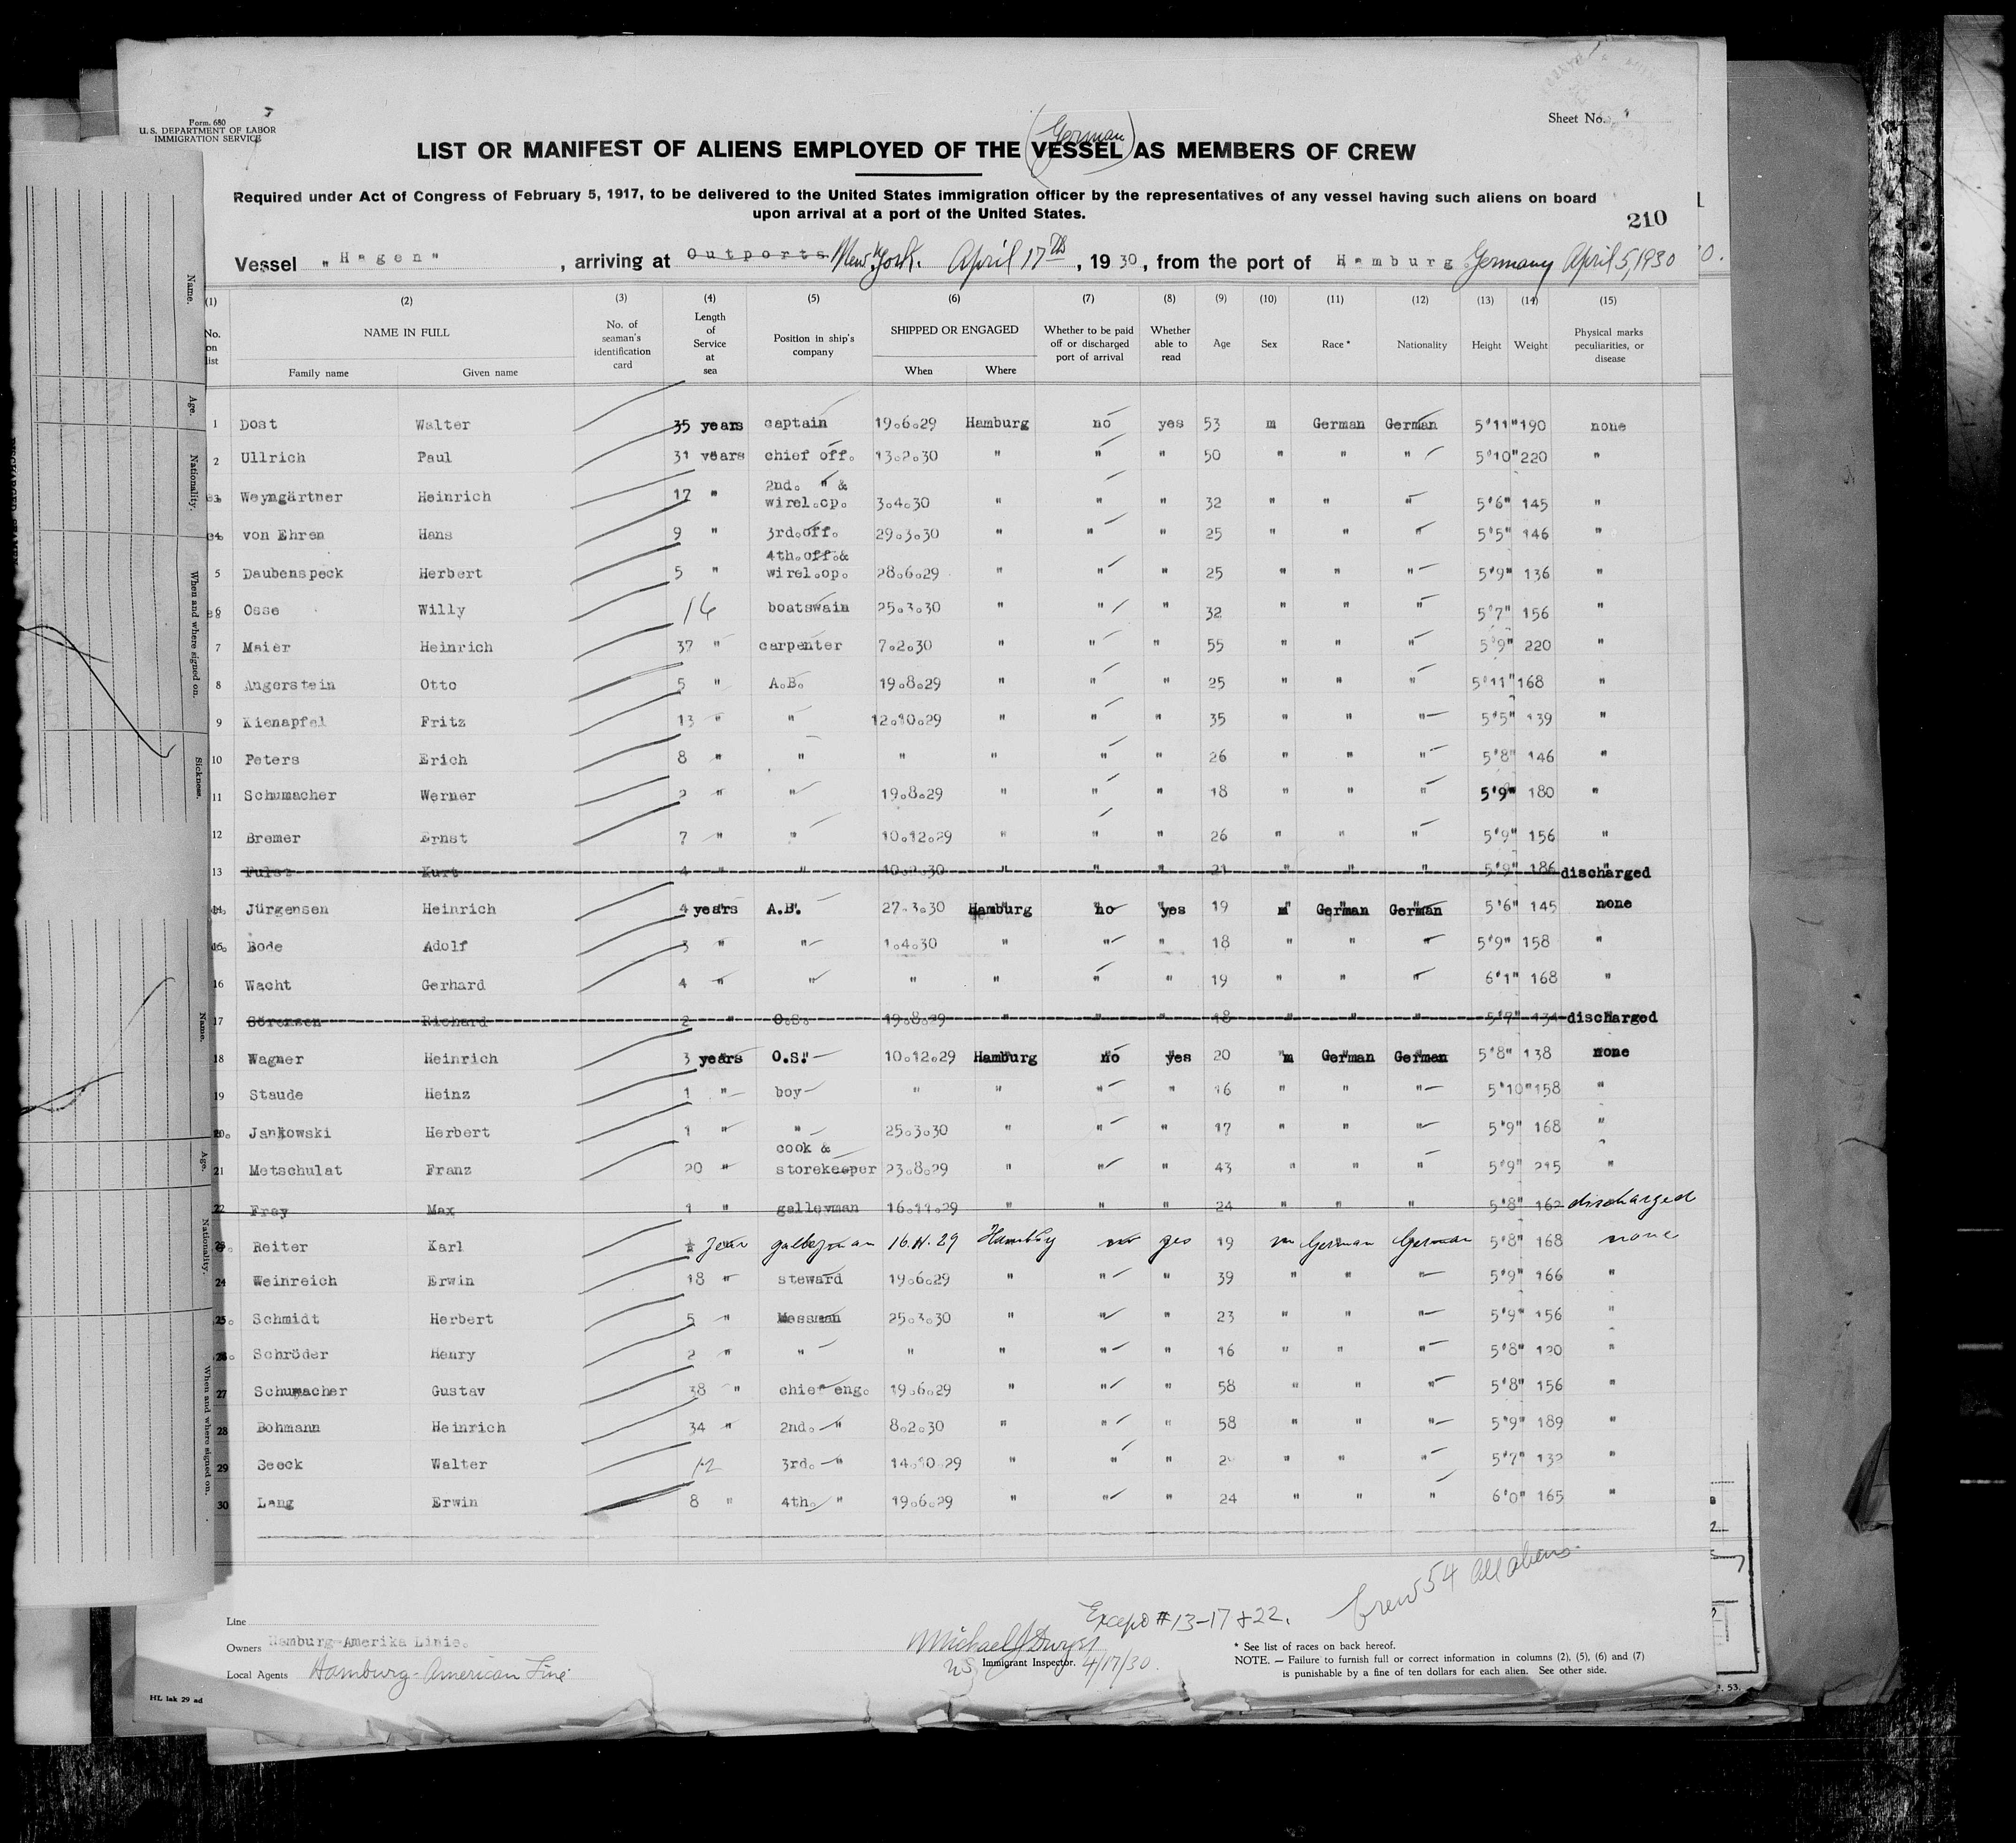 Form. 680
U.S. DEPARTMENT OF LABOR
IMMIGRATION SERVICE
Sheet No.
(German)
LIST OR MANIFEST OF ALIENS EMPLOYED OF THE VESSEL AS MEMBERS OF CREW
Required under Act of Congress of February 5, 1917, to be delivered to the United States immigration officer by the representatives of any vessel having such aliens on board
upon arrival at a port of the United States.
210
Vessel "Hagen", arriving at Outports New York. April 17th, 1930, from the port of Hamburg Germany April 5, 1930
(1) (2) (3) (4) (5) (6) (7) (8) (9) (10) (11) (12) (13) (14) (15)
No. on list NAME IN FULL Family name Given name No. of seaman's identification card Length of Service at sea Position in ship's company SHIPPED OR ENGAGED When Where Whether to be paid off or discharged port of arrival Whether able to read Age Sex Race * Nationality Height Weight Physical marks peculiarities, or disease
1 Dost Walter 35 years captain 19.6.29 Hamburg no yes 53 m German German 5'11" 190 none
2 Ullrich Paul 31 years chief off. 13.2.30 " " " 50 " " " 5'10" 220 "
3 Weyngärtner Heinrich 17 " 2nd. " & wirel.op. 3.4.30 " " " 32 " " " 5'6" 145 "
4 von Ehren Hans 9 " 3rd.off. 29.3.30 " " " 25 " " " 5'5" 146 "
5 Daubenspeck Herbert 5 " 4th.off.& wirel.op. 28.6.29 " " " 25 " " " 5'9" 136 "
6 Osse Willy 16 boatswain 25.3.30 " " " 32 " " " 5'7" 156 "
7 Maier Heinrich 37 " carpenter 7.2.30 " " " 55 " " " 5'9" 220 "
8 Angerstein Otto 5 " A.B. 19.8.29 " " " 25 " " " 5'11" 168 "
9 Kienapfel Fritz 13 " " 12.10.29 " " " 35 " " " 5'5" 139 "
10 Peters Erich 8 " " " " " " 26 " " " 5'8" 146 "
11 Schumacher Werner 2 " " 19.8.29 " " " 18 " " " 5'9" 180 "
12 Bremer Ernst 7 " " 10.12.29 " " " 26 " " " 5'9" 156 "
13 Kurt 4 " " 10.2.30 " " " 21 " " " 5'9" 186 discharged
14 Jürgensen Heinrich 4 years A.B. 27.3.30 Hamburg no yes 19 m German German 5'6" 145 none
15 Bode Adolf 3 " " 1.4.30 " " " 18 " " " 5'9" 158 "
16 Wacht Gerhard 4 " " " " " " 19 " " " 6'1" 168 "
17 Sörensen Richard 2 " O.S. 19.8.29 " " " 18 " " " 5'7" 134 discharged
18 Wagner Heinrich 3 years O.S. 10.12.29 Hamburg no yes 20 m German German 5'8" 138 none
19 Staude Heinz 1 " boy " " " " 16 " " " 5'10" 158 "
20 Jankowski Herbert 1 " " 25.3.30 " " " 17 " " " 5'9" 168 "
21 Metschulat Franz 20 " cook & storekeeper 23.8.29 " " " 43 " " " 5'9" 215 "
22 Frey Max 1 " galleyman 16.11.29 " " " 24 " " " 5'8" 162 discharged
23 Reiter Karl ½ year galleyman 16.11.29 Hamburg no yes 19 m German German 5'8" 168 none
24 Weinreich Erwin 18 " steward 19.6.29 " " " 39 " " " 5'9" 166 "
25 Schmidt Herbert 5 " Messman 25.3.30 " " " 23 " " " 5'9" 156 "
26 Schröder Henry 2 " " " " " " 16 " " " 5'8" 120 "
27 Schumacher Gustav 38 " chief eng. 19.6.29 " " " 58 " " " 5'8" 156 "
28 Bohmann Heinrich 34 " 2nd. " 8.2.30 " " " 58 " " " 5'9" 189 "
29 Seeck Walter 12 3rd. " 14.10.29 " " " " " " 5'7" 132 "
30 Lang Erwin 8 " 4th. " 19.6.29 " " " 24 " " " 6'0" 165 "
Crew 54 all aliens.
Except #13-17 & 22.
Line
Owners Hamburg-Amerika Linie.
Local Agents Hamburg-American Line
Michael J Dwyer
US Immigrant Inspector. 4/17/30.
* See list of races on back hereof.
NOTE. — Failure to furnish full or correct information in columns (2), (5), (6) and (7)
is punishable by a fine of ten dollars for each alien. See other side.
HL lak 29 ad
Name.
Age.
Nationality.
When and where signed on.
Sickness.
Name.
Age.
Nationality.
When and where signed on.